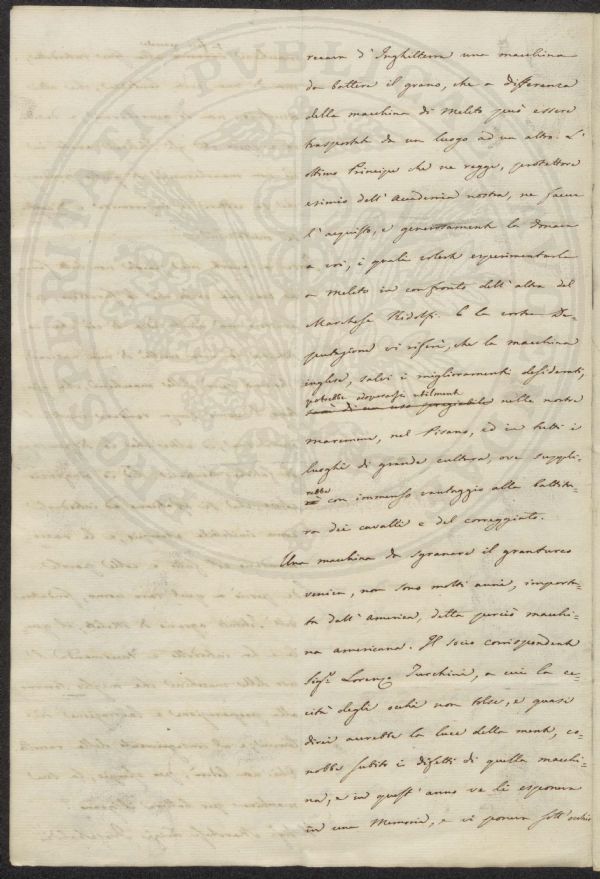 recava d'Inghilterra una macchina
da battere il grano, che a differenza
della macchina di Meleto può essere
trasportata da un luogo ad un altro. L'
ottimo Principe che ne regge, protettore
esimio dell'Accademia nostra, ne facea
l'acquisto, e generosamente la donava
a voi, i quali voleste esperimentarla
a Meleto in confronto dell'altra del
Marchese Ridolfi. E la vostra De-
putazione vi riferì, che la macchina
inglese, salvi i miglioramenti desiderati,
potrebbe adoperarsi utilmente
sarà di un uso pregiabile nelle nostre
maremme, nel Pisano, ed in tutti i
luoghi di grande cultura, ove suppli-
rebbe
con immenso vantaggio alla battitu-
ra dei cavalli e del correggiato.
Una macchina da sgranare il granturco
veniva, non sono molti anni, importa-
ta dall'America, detta perciò macchi-
na americana. Il socio corrispondente
Sigr. Lorenzo Turchini, a cui la ce-
cità degli occhi non tolse, e quasi
direi aurebbe la luce della mente, co-
nobbe subito i difetti di quella macchi-
na, e in quest'anno ve li esponeva
in una Memoria, e vi poneva sott'occhio
PROSPERITATI PUBLICAE